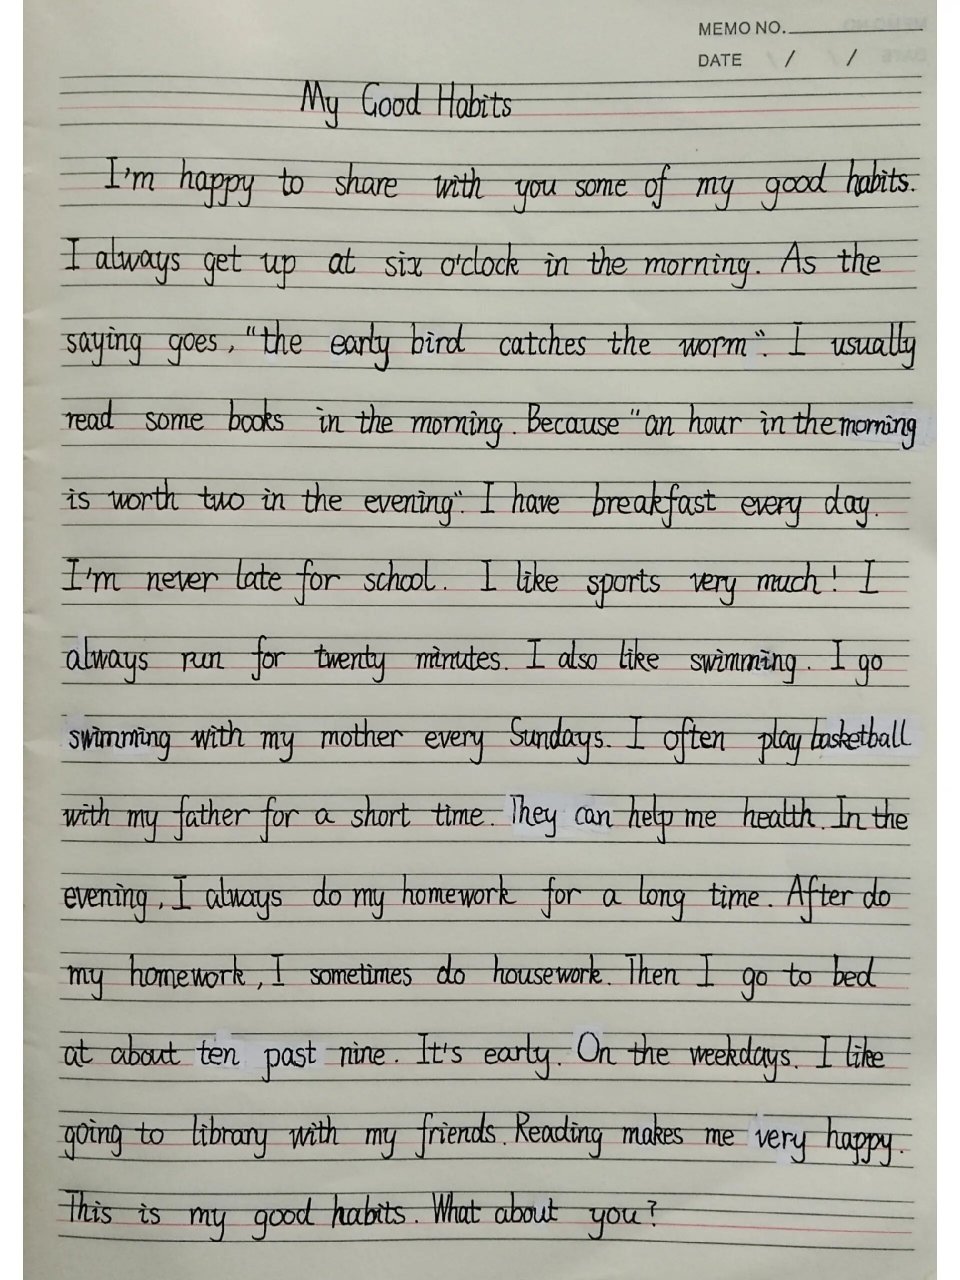 MEMO NO.
DATE / /
My Good Habits
I'm happy to share with you some of my good habits.
I always get up at six o'clock in the morning. As the
saying goes, "the early bird catches the worm". I usually
read some books in the morning. Because "an hour in the morning
is worth two in the evening". I have breakfast every day.
I'm never late for school. I like sports very much! I
always run for twenty minutes. I also like swimming. I go
swimming with my mother every Sundays. I often play basketball
with my father for a short time. They can help me health. In the
evening, I always do my homework for a long time. After do
my homework, I sometimes do housework. Then I go to bed
at about ten past nine. It's early. On the weekdays. I like
going to library with my friends. Reading makes me very happy.
This is my good habits. What about you?